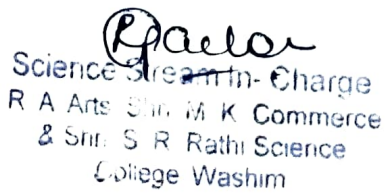 Science Stream In- Charge
R A Arts Shri. M K Commerce
& Shri. S R Rathi Science
College Washim